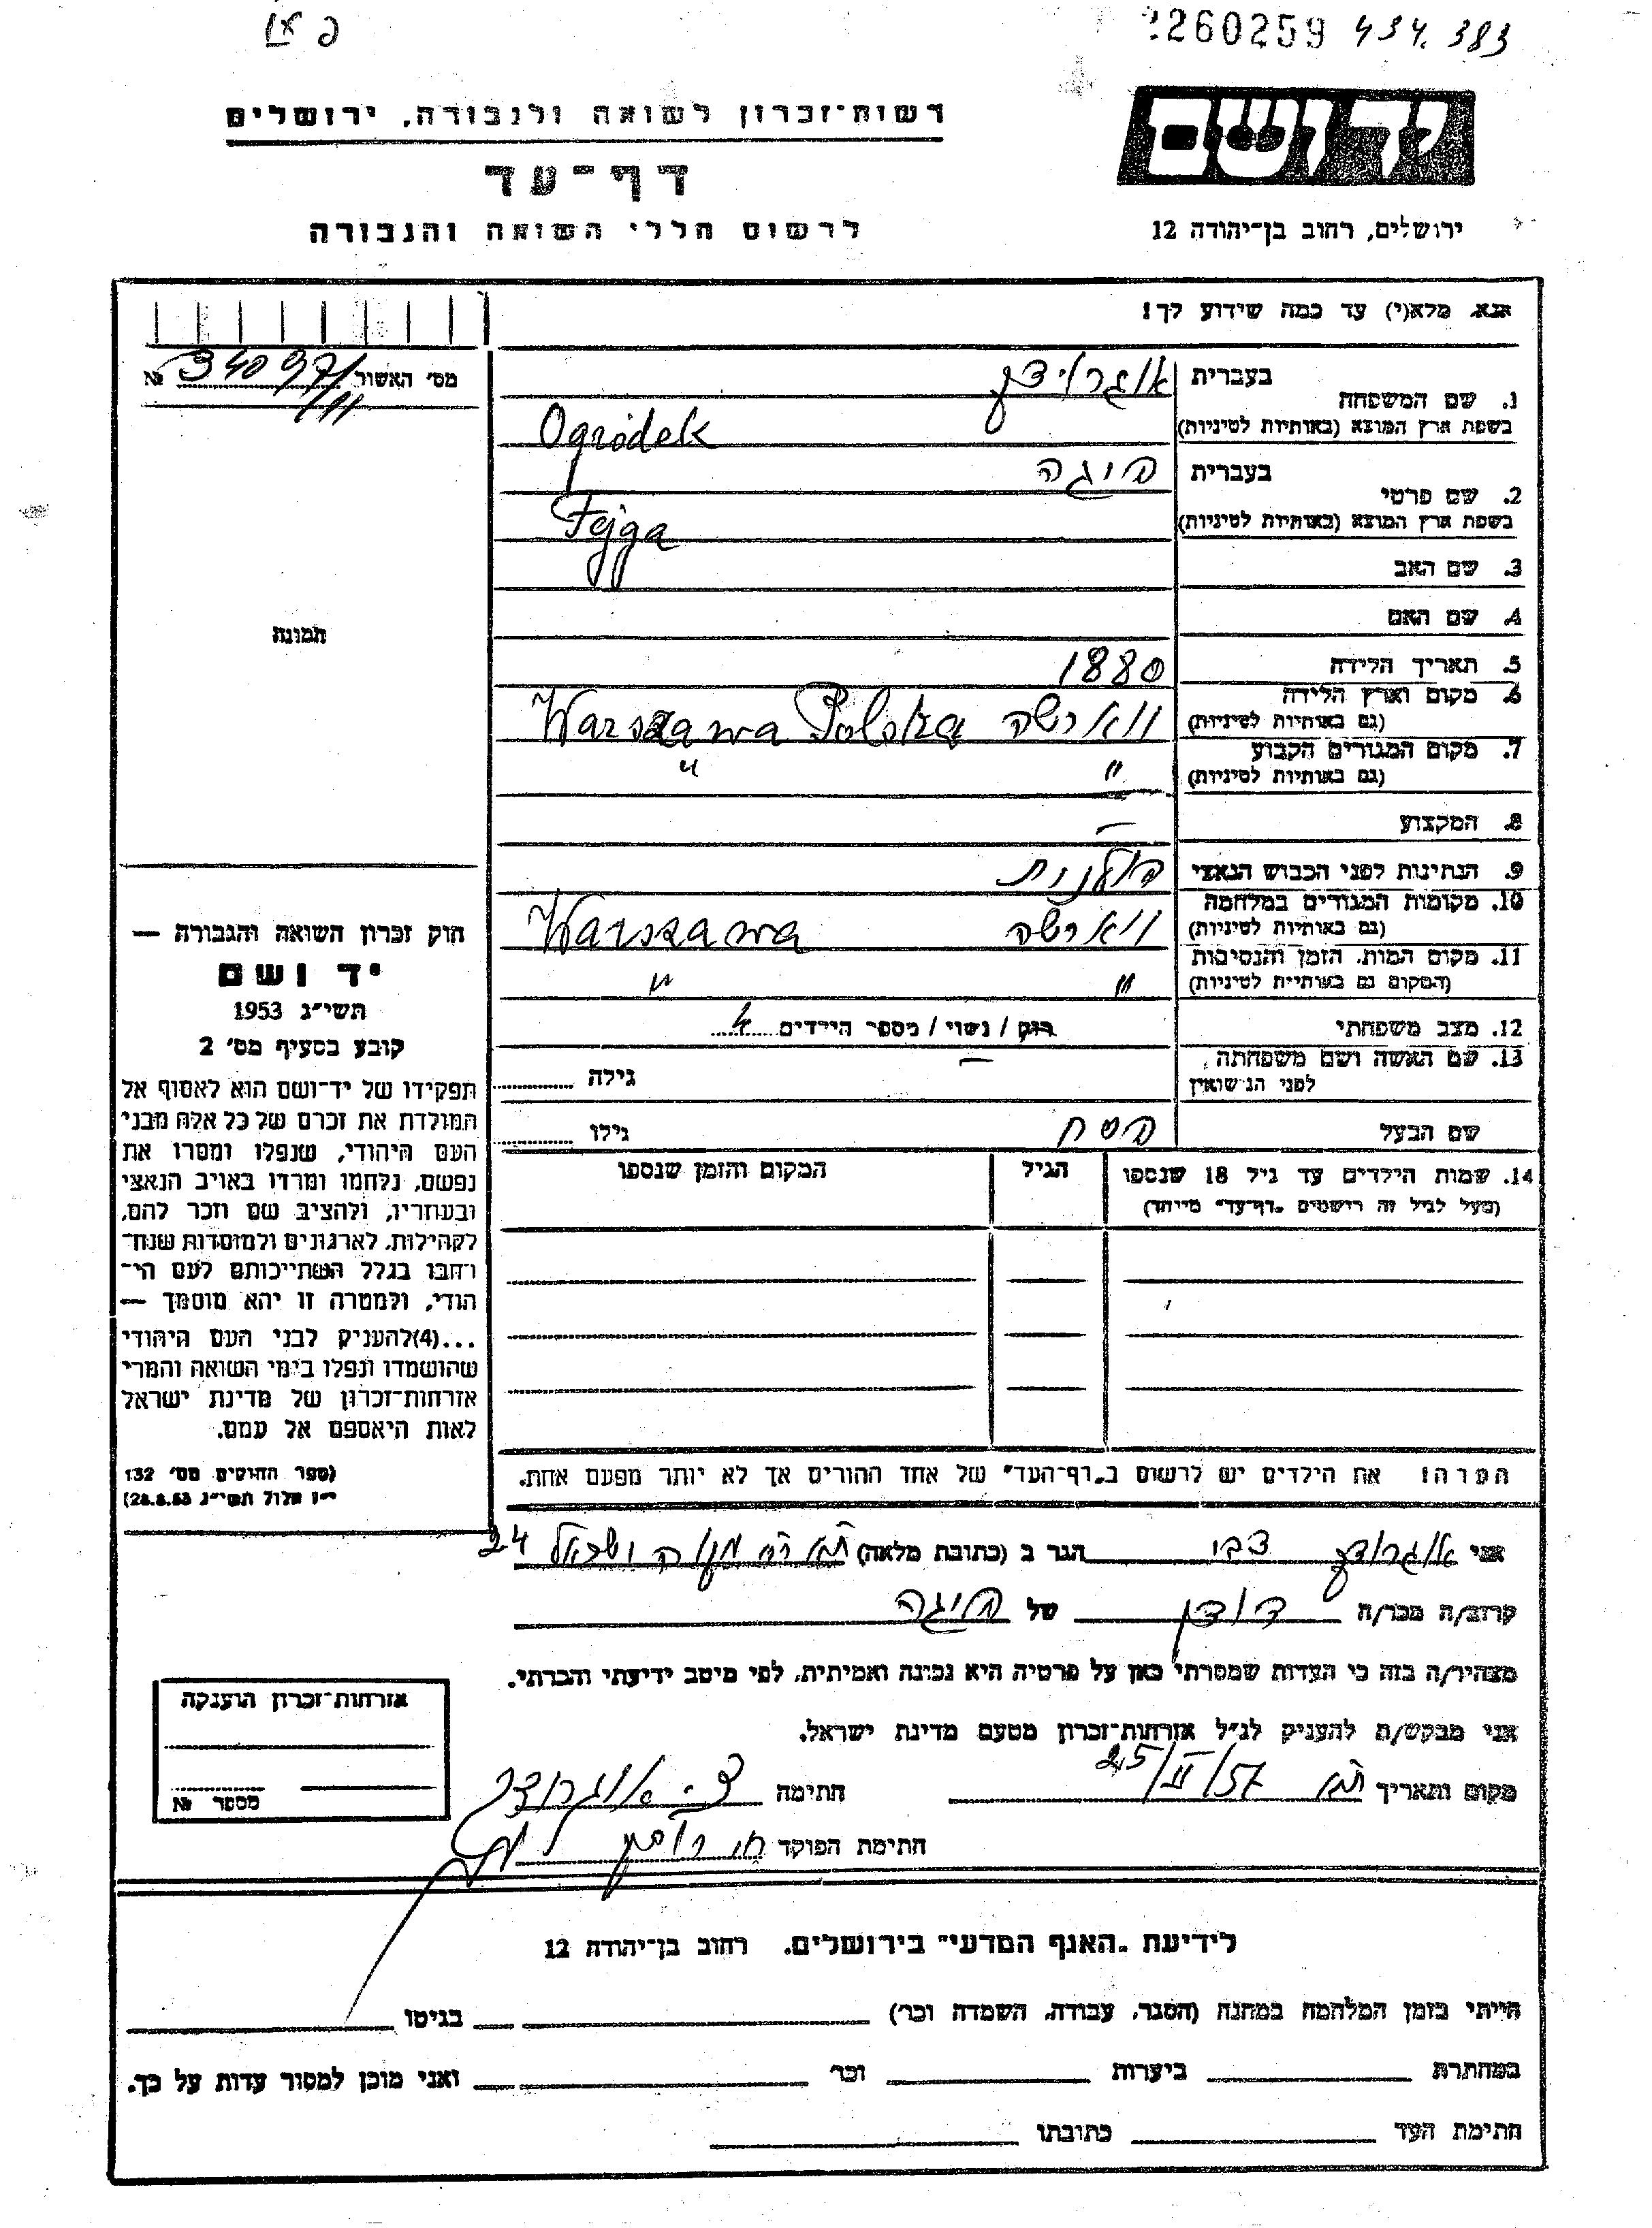 260259 434.383
יד ושם
ירושלים, רחוב בן־יהודה 12
רשות־זכרון לשואה ולגבורה, ירושלים
דף־עד
לרשום חללי השואה והגבורה
אנא, מלא(י) עד כמה שידוע לך!
מס׳ האשור 34097/111 №
1. שם המשפחה
בעברית אוגרודק
בשפת ארץ המוצא (באותיות לטיניות) Ogródek
2. שם פרטי
בעברית פיגה
בשפת ארץ המוצא (באותיות לטיניות) Fejga
3. שם האב
4. שם האם
5. תאריך הלידה 1880
6. מקום וארץ הלידה
(גם באותיות לטיניות) ווארשה Warszawa Polska
7. מקום המגורים הקבוע
(גם באותיות לטיניות) " "
8. המקצוע —
9. הנתינות לפני הכבוש הנאצי פולנית
10. מקומות המגורים במלחמה
(גם באותיות לטיניות) ווארשה Warszawa
11. מקום המות, הזמן והנסיבות
(המקום גם באותיות לטיניות) " "
12. מצב משפחתי רוק / נשוי / מספר הילדים 4
13. שם האשה ושם משפחתה
לפני הנישואין — גילה
שם הבעל פסח גילו
14. שמות הילדים עד גיל 18 שנספו
(מעל לגיל זה רושמים "דף־עד" מיוחד)
הגיל
המקום והזמן שנספו
הערה! את הילדים יש לרשום ב"דף־העד" של אחד ההורים אך לא יותר מפעם אחת.
תמונה
חוק זכרון השואה והגבורה —
יד ושם
תשי״ג 1953
קובע בסעיף מס׳ 2
תפקידו של יד־ושם הוא לאסוף אל
המולדת את זכרם של כל אלה מבני
העם היהודי, שנפלו ומסרו את
נפשם, נלחמו ומרדו באויב הנאצי
ובעוזריו, ולהציב שם וזכר להם,
לקהילות, לארגונים ולמוסדות שנח־
רבו בגלל השתייכותם לעם הי־
הודי, ולמטרה זו יהא מוסמך —
...(4) להעניק לבני העם היהודי
שהושמדו ונפלו בימי השואה והמרי
אזרחות־זכרון של מדינת ישראל
לאות היאספם אל עמם.
(ספר החוקים מס׳ 132
י״ז אלול תשי״ג 28.8.53)
אני אוגרודק צבי הגר ב (כתובת מלאה) ישראל 24
קרוב/ה מכר/ה דודן של פיגה
מצהיר/ה בזה כי העדות שמסרתי כאן על פרטיה היא נכונה ואמיתית, לפי מיטב ידיעתי והכרתי.
אני מבקש/ת להעניק לנ״ל אזרחות־זכרון מטעם מדינת ישראל.
מקום ותאריך ת״א 25/II/57 חתימה צ. אוגרודק
חתימת הפוקד
אזרחות־זכרון הוענקה
מספר №
לידיעת "האגף המדעי" בירושלים, רחוב בן־יהודה 12
הייתי בזמן המלחמה במחנה (הסגר, עבודה, השמדה וכר׳) בגיטו
במחתרת ביערות וכר׳ ואני מוכן למסור עדות על כך.
חתימת העד כתובתו